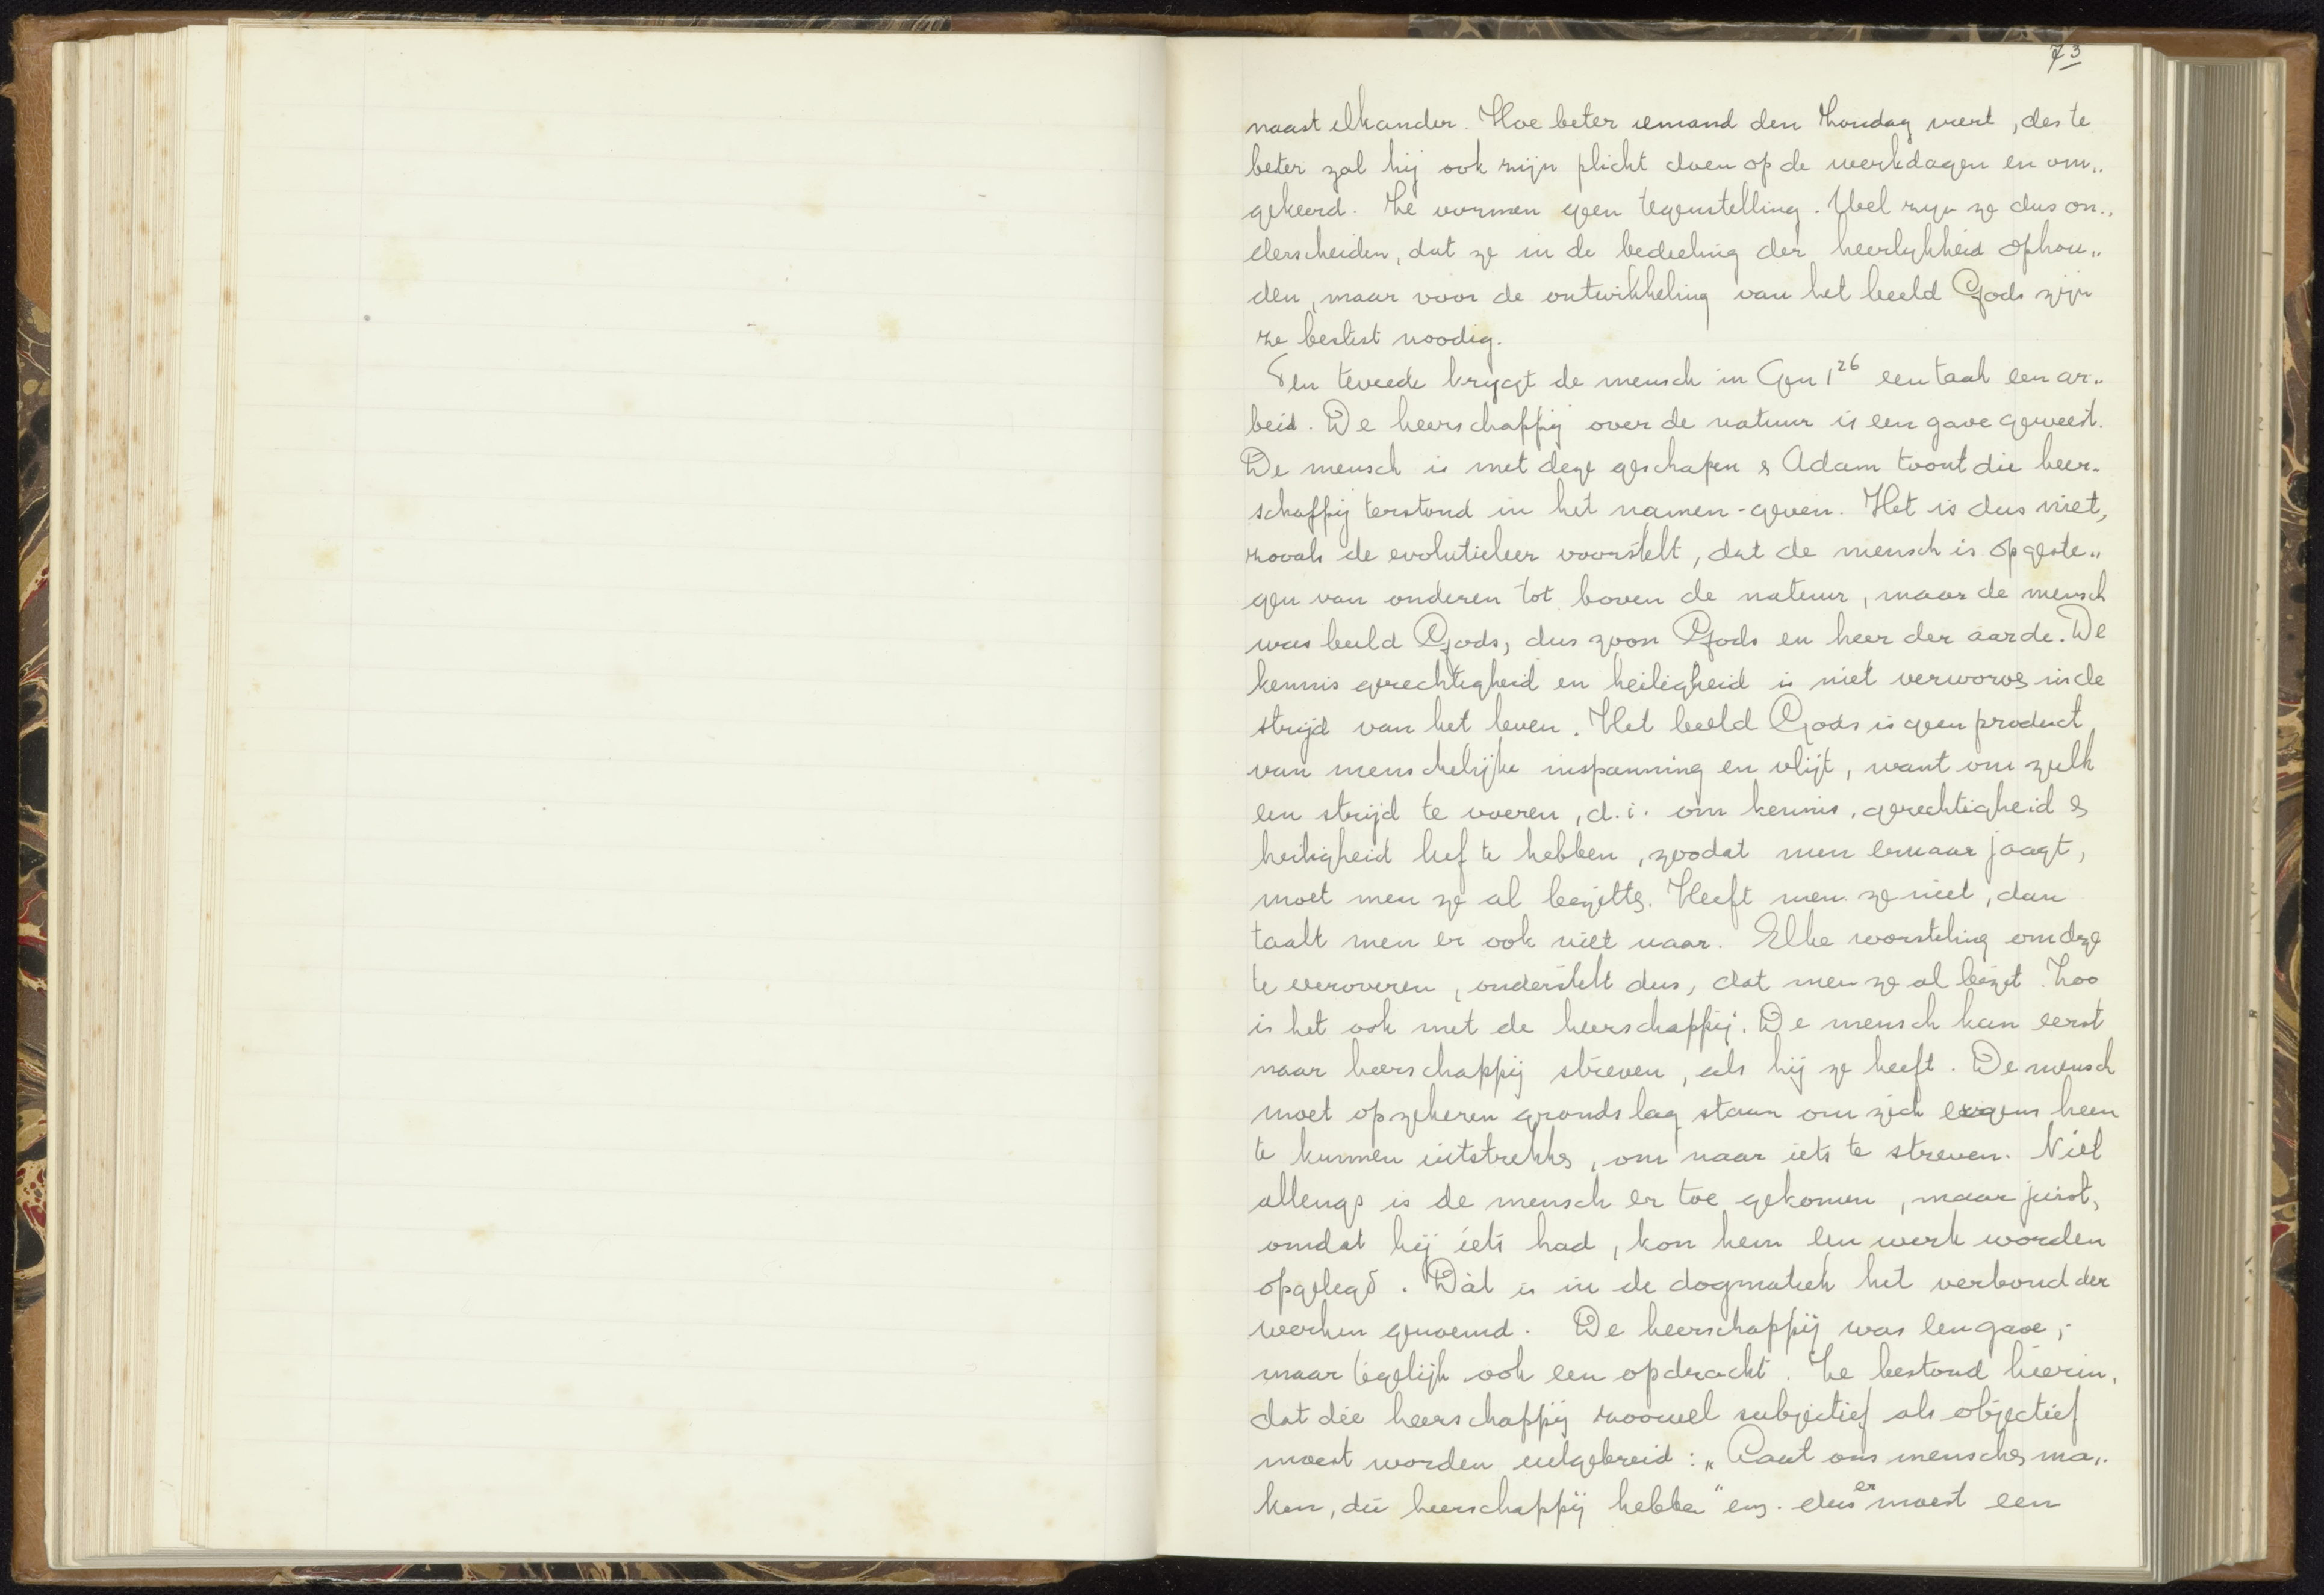 73
naast elkander. Hoe beter iemand den Zondag viert, des te
beter zal hij ook zijn plicht doen op de werkdagen en om„
gekeerd. Ze vormen geen tegenstelling. Wel zijn ze dus on„
derscheiden, dat ze in de bedeeling der heerlijkheid ophou„
den, maar voor de ontwikkeling van het beeld Gods zijn
ze beslist noodig.
Ten tweede krijgt de mensch in Gen 1²⁶ een taak een ar„
beid. De heerschappij over de natuur is een gave geweest.
De mensch is met deze geschapen & Adam toont die heer„
schappij terstond in het namen-geven. Het is dus niet,
zooals de evolutieleer voorstelt, dat de mensch is opgeste„
gen van onderen tot boven de natuur, maar de mensch
was beeld Gods, dus zoon Gods en heer der aarde. De
kennis gerechtigheid en heiligheid is niet verworven in de
strijd van het leven. Het beeld Gods is geen product
van menschelijke inspanning en vlijt, want om zulk
een strijd te voeren, d.i. om kennis, gerechtigheid &
heiligheid lief te hebben, zoodat men ernaar jaagt,
moet men ze al bezitten. Heeft men ze niet, dan
taalt men er ook niet naar. Elke worsteling om deze
te veroveren, onderstelt dus, dat men ze al bezit. Zoo
is het ook met de heerschappij. De mensch kan eerst
naar heerschappij streven, als hij ze heeft. De mensch
moet op zekeren grondslag staan om zich ergens heen
te kunnen uitstrekken, om naar iets te streven. Niet
allengs is de mensch er toe gekomen, maar juist,
omdat hij iets had, kon hem een werk worden
opgelegd. Dàt is in de dogmatiek het verbond der
werken genoemd. De heerschappij was een gave,
maar tegelijk ook een opdracht. Ze bestond hierin,
dat die heerschappij zoowel subjectief als objectief
moest worden uitgebreid: „Laat ons menschen ma„
ken, die heerschappij hebben" enz. dus er moest een